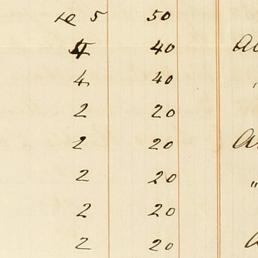 5 50
4 40
4 40
2 20
2 20
2 20
2 20
2 20